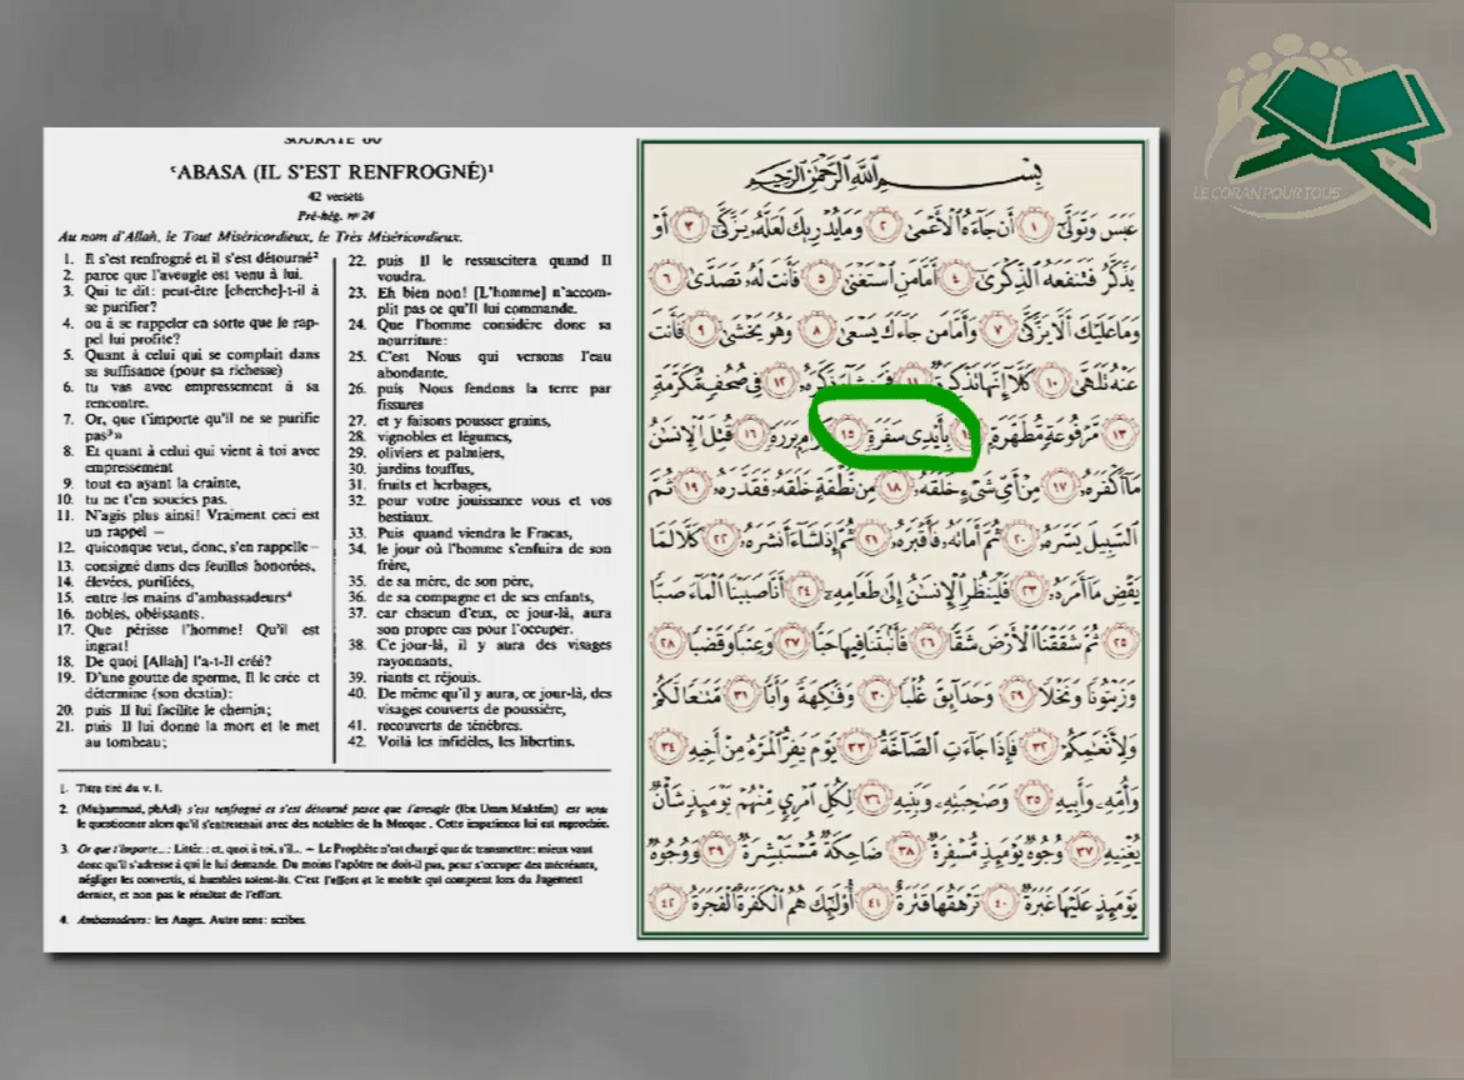 SOURATE 80
‘ABASA (IL S'EST RENFROGNÉ)¹
42 versets
Pré-hég. nº 24
Au nom d'Allah, le Tout Miséricordieux, le Très Miséricordieux.
1. Il s'est renfrogné et il s'est détourné²
2. parce que l'aveugle est venu à lui.
3. Qui te dit: peut-être [cherche]-t-il à
se purifier?
4. ou à se rappeler en sorte que le rap-
pel lui profite?
5. Quant à celui qui se complait dans
sa suffisance (pour sa richesse)
6. tu vas avec empressement à sa
rencontre.
7. Or, que t'importe qu'il ne se purifie
pas³»
8. Et quant à celui qui vient à toi avec
empressement
9. tout en ayant la crainte,
10. tu ne t'en soucies pas.
11. N'agis plus ainsi! Vraiment ceci est
un rappel —
12. quiconque veut, donc, s'en rappelle –
13. consigné dans des feuilles honorées,
14. élevées, purifiées,
15. entre les mains d'ambassadeurs⁴
16. nobles, obéissants.
17. Que périsse l'homme! Qu'il est
ingrat!
18. De quoi [Allah] l'a-t-Il créé?
19. D'une goutte de sperme, Il le crée et
détermine (son destin):
20. puis Il lui facilite le chemin;
21. puis Il lui donne la mort et le met
au tombeau;
22. puis Il le ressuscitera quand Il
voudra.
23. Eh bien non! [L'homme] n'accom-
plit pas ce qu'Il lui commande.
24. Que l'homme considère donc sa
nourriture:
25. C'est Nous qui versons l'eau
abondante,
26. puis Nous fendons la terre par
fissures
27. et y faisons pousser grains,
28. vignobles et légumes,
29. oliviers et palmiers,
30. jardins touffus,
31. fruits et herbages,
32. pour votre jouissance vous et vos
bestiaux.
33. Puis quand viendra le Fracas,
34. le jour où l'homme s'enfuira de son
frère,
35. de sa mère, de son père,
36. de sa compagne et de ses enfants,
37. car chacun d'eux, ce jour-là, aura
son propre cas pour l'occuper.
38. Ce jour-là, il y aura des visages
rayonnants,
39. riants et réjouis.
40. De même qu'il y aura, ce jour-là, des
visages couverts de poussière,
41. recouverts de ténèbres.
42. Voilà les infidèles, les libertins.
1. Titre tiré du v. 1.
2. (Muhammad, phAsl) s'est renfrogné et s'est détourné parce que l'aveugle (Ibn Umm Maktûm) est venu
le questionner alors qu'il s'entretenait avec des notables de la Mecque. Cette impatience lui est reprochée.
3. Or que t'importe...: Littér.: et, quoi à toi, s'il... – Le Prophète n'est chargé que de transmettre: mieux vaut
donc qu'il s'adresse à qui le lui demande. Du moins l'apôtre ne doit-il pas, pour s'occuper des mécréants,
négliger les convertis, si humbles soient-ils. C'est l'effort et le mobile qui comptent lors du Jugement
dernier, et non pas le résultat de l'effort.
4. Ambassadeurs: les Anges. Autre sens: scribes.
بِسْمِ اللَّهِ الرَّحْمَٰنِ الرَّحِيمِ
عَبَسَ وَتَوَلَّىٰ ١ أَن جَاءَهُ الْأَعْمَىٰ ٢ وَمَا يُدْرِيكَ لَعَلَّهُ يَزَّكَّىٰ ٣ أَوْ
يَذَّكَّرُ فَتَنفَعَهُ الذِّكْرَىٰ ٤ أَمَّا مَنِ اسْتَغْنَىٰ ٥ فَأَنتَ لَهُ تَصَدَّىٰ ٦
وَمَا عَلَيْكَ أَلَّا يَزَّكَّىٰ ٧ وَأَمَّا مَن جَاءَكَ يَسْعَىٰ ٨ وَهُوَ يَخْشَىٰ ٩ فَأَنتَ
عَنْهُ تَلَهَّىٰ ١٠ كَلَّا إِنَّهَا تَذْكِرَةٌ ١١ فَمَن شَاءَ ذَكَرَهُ ١٢ فِي صُحُفٍ مُّكَرَّمَةٍ
١٣ مَّرْفُوعَةٍ مُّطَهَّرَةٍ ١٤ بِأَيْدِي سَفَرَةٍ ١٥ كِرَامٍ بَرَرَةٍ ١٦ قُتِلَ الْإِنسَانُ
مَا أَكْفَرَهُ ١٧ مِنْ أَيِّ شَيْءٍ خَلَقَهُ ١٨ مِن نُّطْفَةٍ خَلَقَهُ فَقَدَّرَهُ ١٩ ثُمَّ
السَّبِيلَ يَسَّرَهُ ٢٠ ثُمَّ أَمَاتَهُ فَأَقْبَرَهُ ٢١ ثُمَّ إِذَا شَاءَ أَنشَرَهُ ٢٢ كَلَّا لَمَّا
يَقْضِ مَا أَمَرَهُ ٢٣ فَلْيَنظُرِ الْإِنسَانُ إِلَىٰ طَعَامِهِ ٢٤ أَنَّا صَبَبْنَا الْمَاءَ صَبًّا
٢٥ ثُمَّ شَقَقْنَا الْأَرْضَ شَقًّا ٢٦ فَأَنبَتْنَا فِيهَا حَبًّا ٢٧ وَعِنَبًا وَقَضْبًا ٢٨
وَزَيْتُونًا وَنَخْلًا ٢٩ وَحَدَائِقَ غُلْبًا ٣٠ وَفَاكِهَةً وَأَبًّا ٣١ مَّتَاعًا لَّكُمْ
وَلِأَنْعَامِكُمْ ٣٢ فَإِذَا جَاءَتِ الصَّاخَّةُ ٣٣ يَوْمَ يَفِرُّ الْمَرْءُ مِنْ أَخِيهِ ٣٤
وَأُمِّهِ وَأَبِيهِ ٣٥ وَصَاحِبَتِهِ وَبَنِيهِ ٣٦ لِكُلِّ امْرِئٍ مِّنْهُمْ يَوْمَئِذٍ شَأْنٌ
يُغْنِيهِ ٣٧ وُجُوهٌ يَوْمَئِذٍ مُّسْفِرَةٌ ٣٨ ضَاحِكَةٌ مُّسْتَبْشِرَةٌ ٣٩ وَوُجُوهٌ
يَوْمَئِذٍ عَلَيْهَا غَبَرَةٌ ٤٠ تَرْهَقُهَا قَتَرَةٌ ٤١ أُولَٰئِكَ هُمُ الْكَفَرَةُ الْفَجَرَةُ ٤٢
LE CORAN POUR TOUS